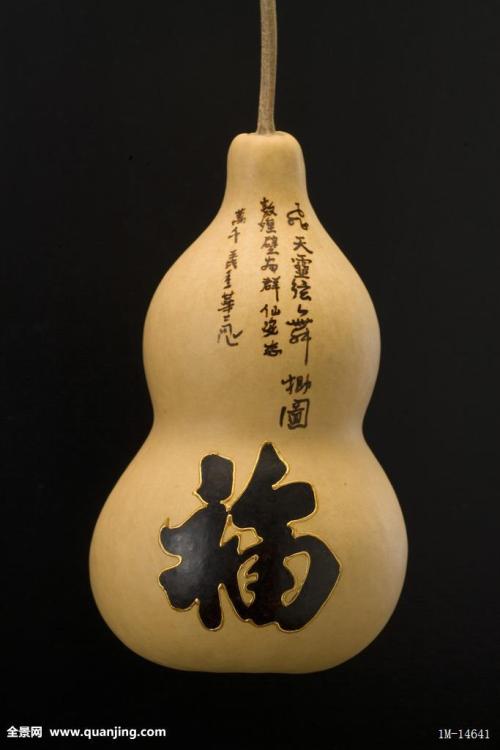 飛天靈弦舞 樹圖
敦煌壁畵群仙姿态
萬千
福
全景网 www.quanjing.com
1M-14641